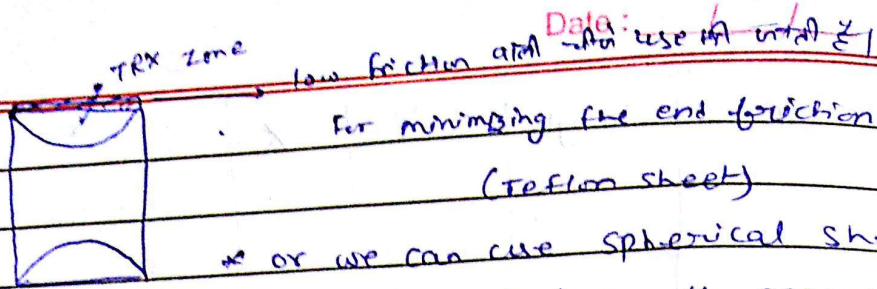 Date: / /
TRX zone
low friction वाली चीजें use की जाती है।
for minimizing the end friction
(Teflon sheet)
* or we can use spherical sh